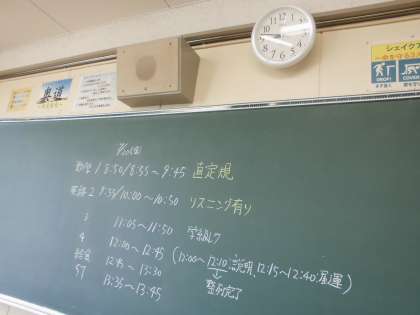 奥の道
シェイクア
DROP!
COVER
7/20(金)
数学 1 8:50/8:55〜9:45 直定規
英語 2 9:55/10:00〜10:50 リスニング有り
3 11:05〜11:50 学級レク
4 12:00〜12:45 (12:00〜12:10:説明、12:15〜12:40:屋運)
整列完了
給食 12:45〜13:30
ST 13:35〜13:45